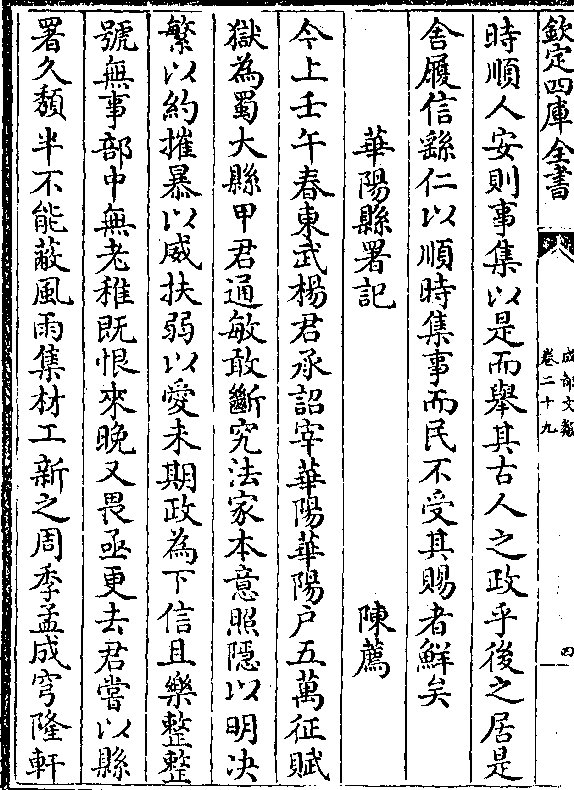 欽定四庫全書
成都文類
卷二十九
四
時順人安則事集以是而舉其古人之政乎後之居是
舍履信繇仁以順時集事而民不受其賜者鮮矣
華陽縣署記
陳薦
今上壬午春東武楊君承詔宰華陽華陽户五萬征賦
獄為蜀大縣甲君通敏敢斷究法家本意照隠以明决
繁以約摧暴以威扶弱以愛未期政為下信且樂整整
號無事部中無老稚既恨來晚又畏亟更去君嘗以縣
署久頽半不能蔽風雨集材工新之周季孟成穹隆軒